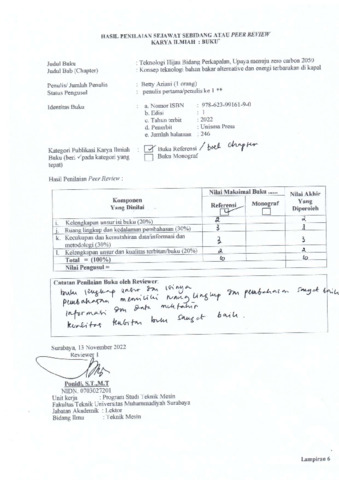 HASIL PENILAIAN SEJAWAT SEBIDANG ATAU PEER REVIEW
KARYA ILMIAH : BUKU
Judul Buku : Teknologi Hijau Bidang Perkapalan, Upaya menuju zero carbon 2050
Judul Bab (Chapter) : Konsep teknologi bahan bakar alternative dan energi terbarukan di kapal
Penulis/ Jumlah Penulis : Betty Ariani (1 orang)
Status Pengusul : penulis pertama/penulis ke 1 **
Identitas Buku : a. Nomor ISBN : 978-623-99161-9-0
b. Edisi : 1
c. Tahun terbit : 2022
d. Penerbit
e. Jumlah halaman : 246
Kategori Publikasi Karya Ilmiah : Buku Referensi / book chapter
Buku (beri √ pada kategori yang Buku Monograf
tepat)
Hasil Penilaian Peer Review :
Komponen Yang Dinilai
Nilai Maksimal Buku ......
Referensi
Monograf
Nilai Akhir Yang Diperoleh
i. Kelengkapan unsur isi buku (20%) 2 2
j. Ruang lingkup dan kedalaman pembahasan (30%) 3 3
k. Kecukupan dan kemutahiran data/informasi dan metodologi (30%) 3 3
l. Kelengkapan unsur dan kualitas terbitan/buku (20%) 2 2
Total = (100%) 10 10
Nilai Pengusul =
Catatan Penilaian Buku oleh Reviewer:
buku lengkap unsur dan isinya
Pembahasan memiliki ruang lingkup dan pembahasan sangat baik
informasi dan data mutakhir
kualitas buku sangat baik.
Surabaya, 13 November 2022
Reviewer 1
Ponidi, S.T.,M.T
NIDN. 0703027201
Unit kerja : Program Studi Teknik Mesin
Fakultas Teknik Univeritas Muhammadiyah Surabaya
Jabatan Akademik : Lektor
Bidang Ilmu : Teknik Mesin
Lampiran 6